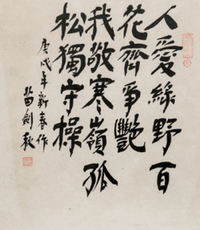 人愛綠野百
花齊爭豔
我敬寒嶺孤
松獨守操
庚戌年新春作
苗劍秋